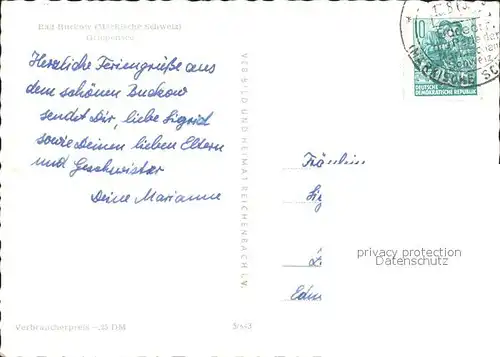 Bad Buckow (Märkische Schweiz)
Griepensee
Herzliche Feriengrüße aus
dem schönen Buckow
sendet Dir, liebe Sigrid
sowie Deinen lieben Eltern
und Geschwister
Deine Marianne
Verbraucherpreis –,25 DM
VEB BILD UND HEIMAT REICHENBACH I.V.
10
DEUTSCHE
DEMOKRATISCHE REPUBLIK
(MÄRKISCHE SC
Fräulein
privacy protection
Datenschutz